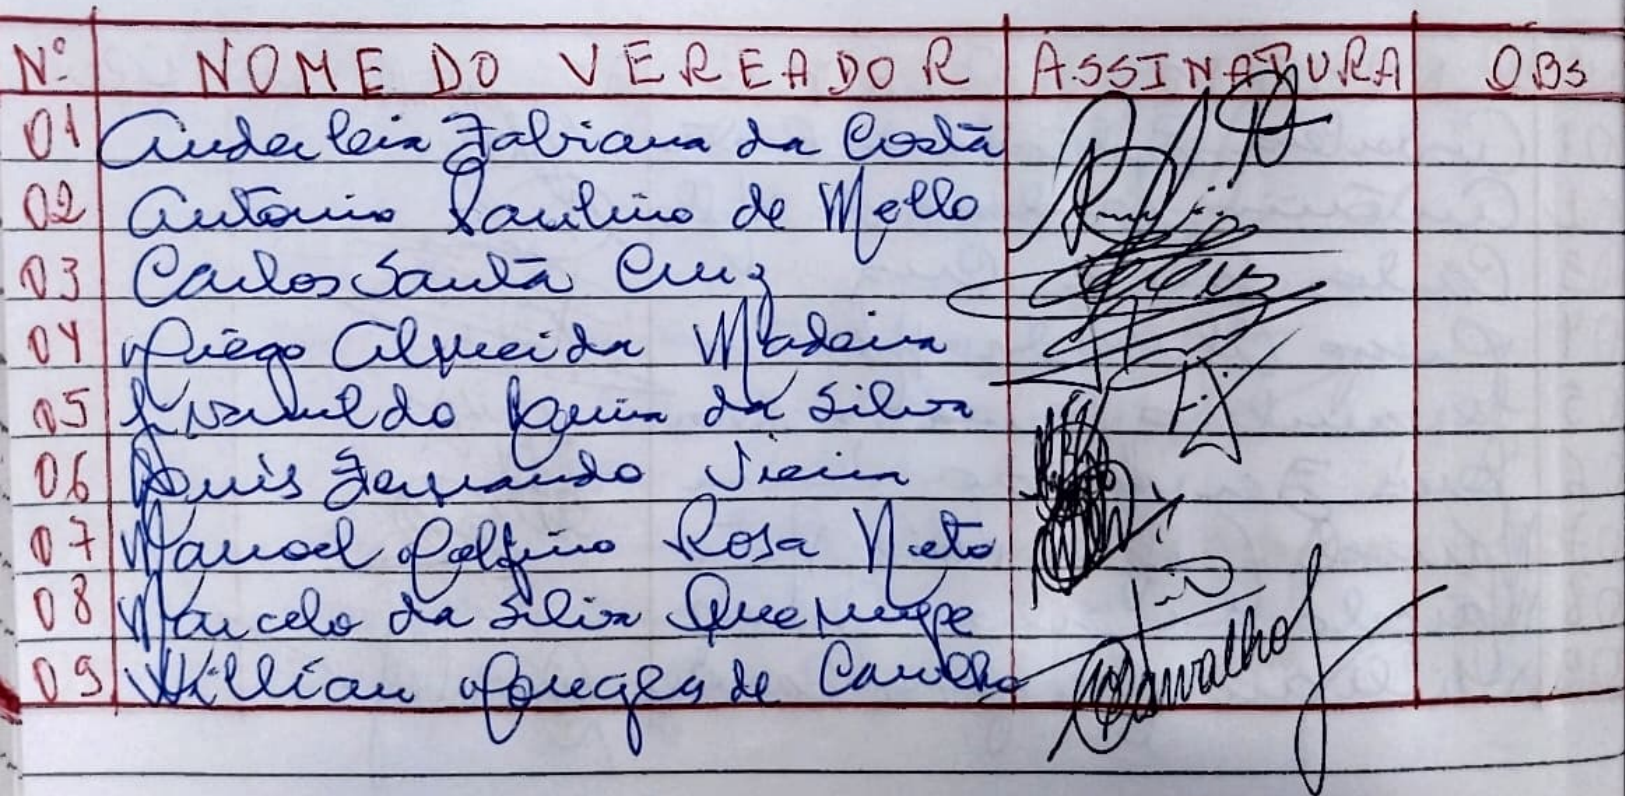 Nº NOME DO VEREADOR ASSINATURA OBS
01 Anderleia Fabiana da Costa
02 Antonio Paulino de Mello
03 Carlos Santa Cruz
04 Diego Almeida Madeira
05 da Silva
06 Luis Fernando Vieira
07 Manoel Delfino Rosa Neto
08 Marcelo da Silva
09 Willian Douglas de Carvalho Carvalho